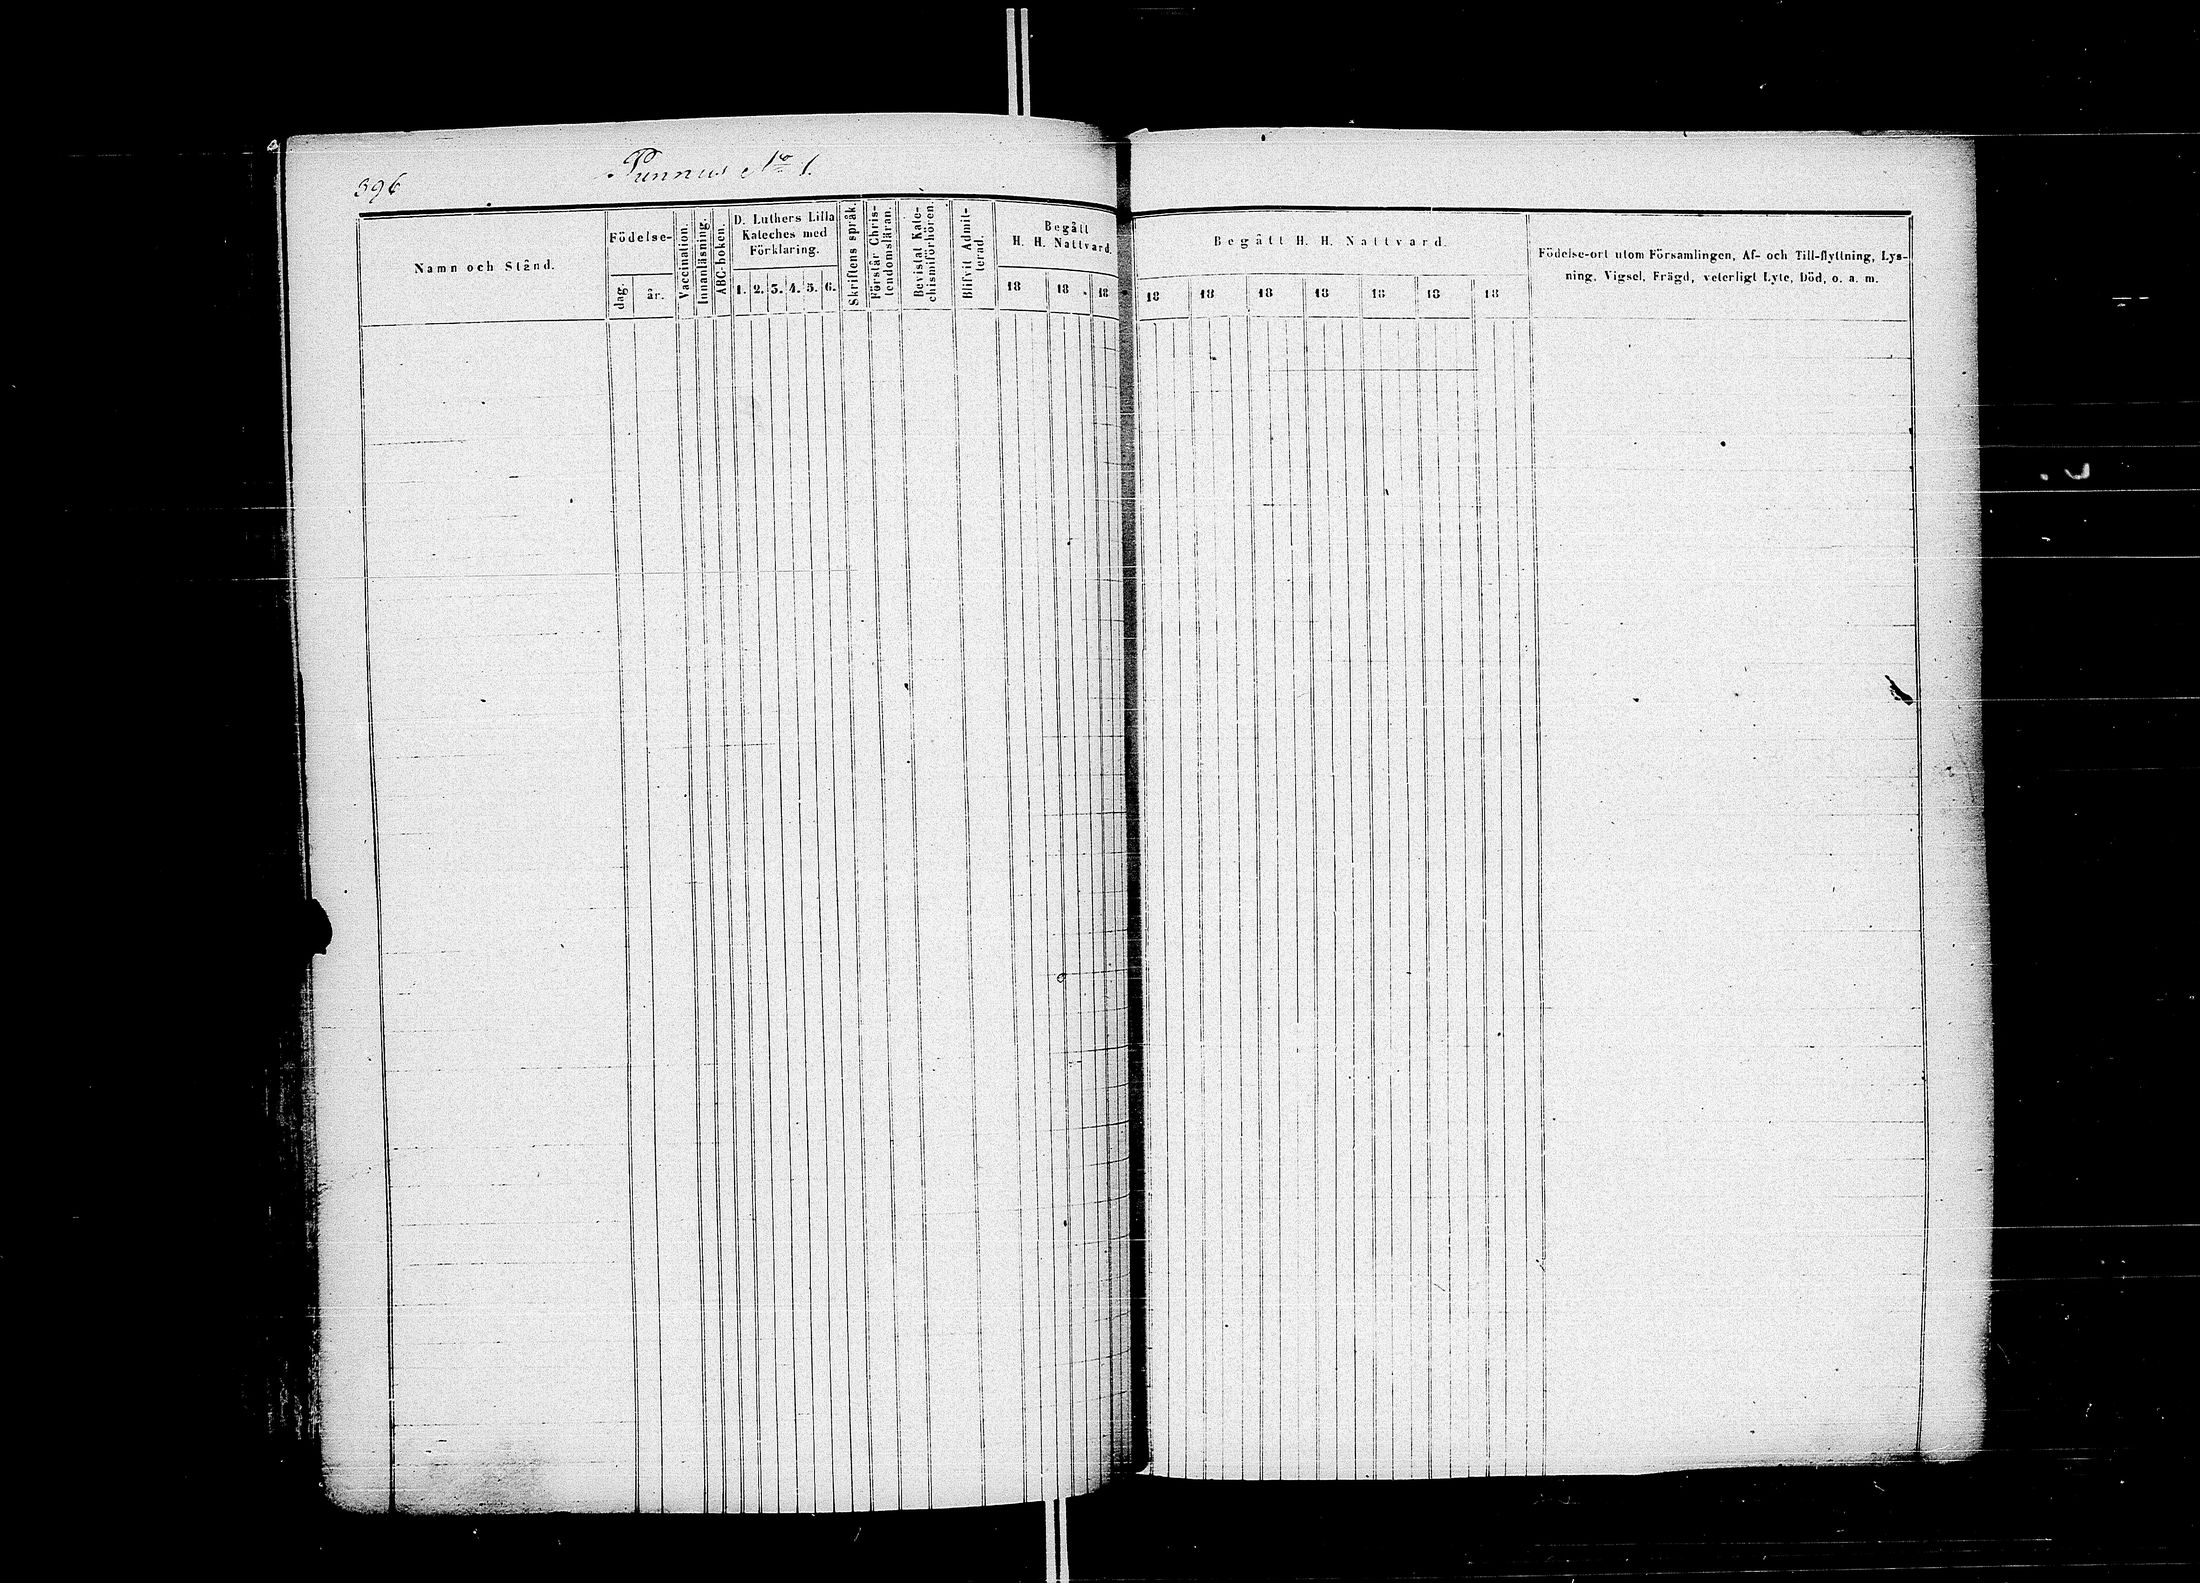 396
Punnus No 1.
Namn och Stånd.
Födelse-
dag.
år.
Vaccination.
Innanläsning.
ABC-boken.
D. Luthers Lilla
Kateches med
Förklaring.
1. 2. 3. 4. 5. 6.
Skriftens språk.
Förstår Chris-
tendomsläran.
Bevistat Kate-
chismiförhören.
Blifvit Admit-
terad.
Begått
H. H. Nattvard.
18 18 18
Begått H. H. Nattvard.
18 18 18 18 18 18 18
Födelse-ort utom Församlingen, Af- och Till-flyttning, Lys-
ning, Vigsel, Frägd, veterligt Lyte, Död, o. a. m.